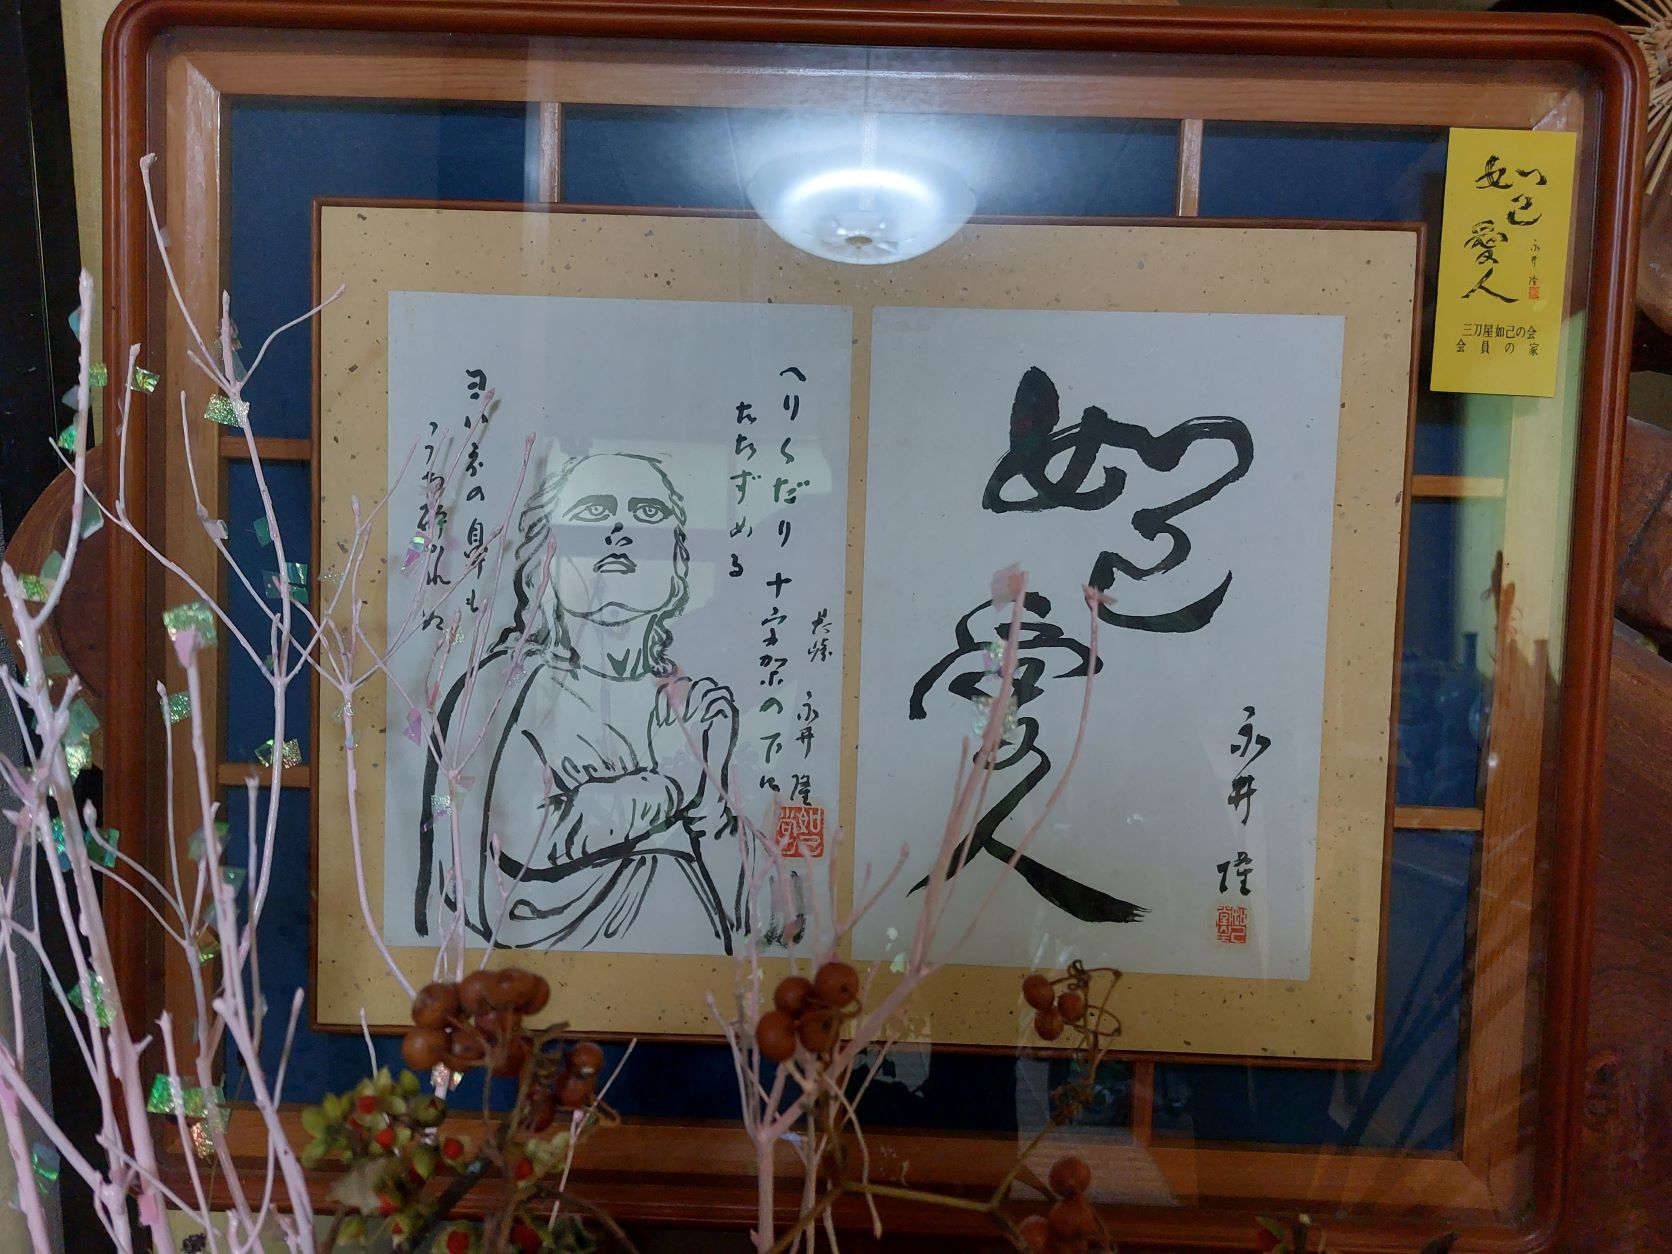 如己
愛人
永井
隆
へりくだり十字架の下に
たたずめる
長崎
永井
隆
うち砕かれぬ
如己
愛人
永井
隆
三刀屋如己の会
会員の家